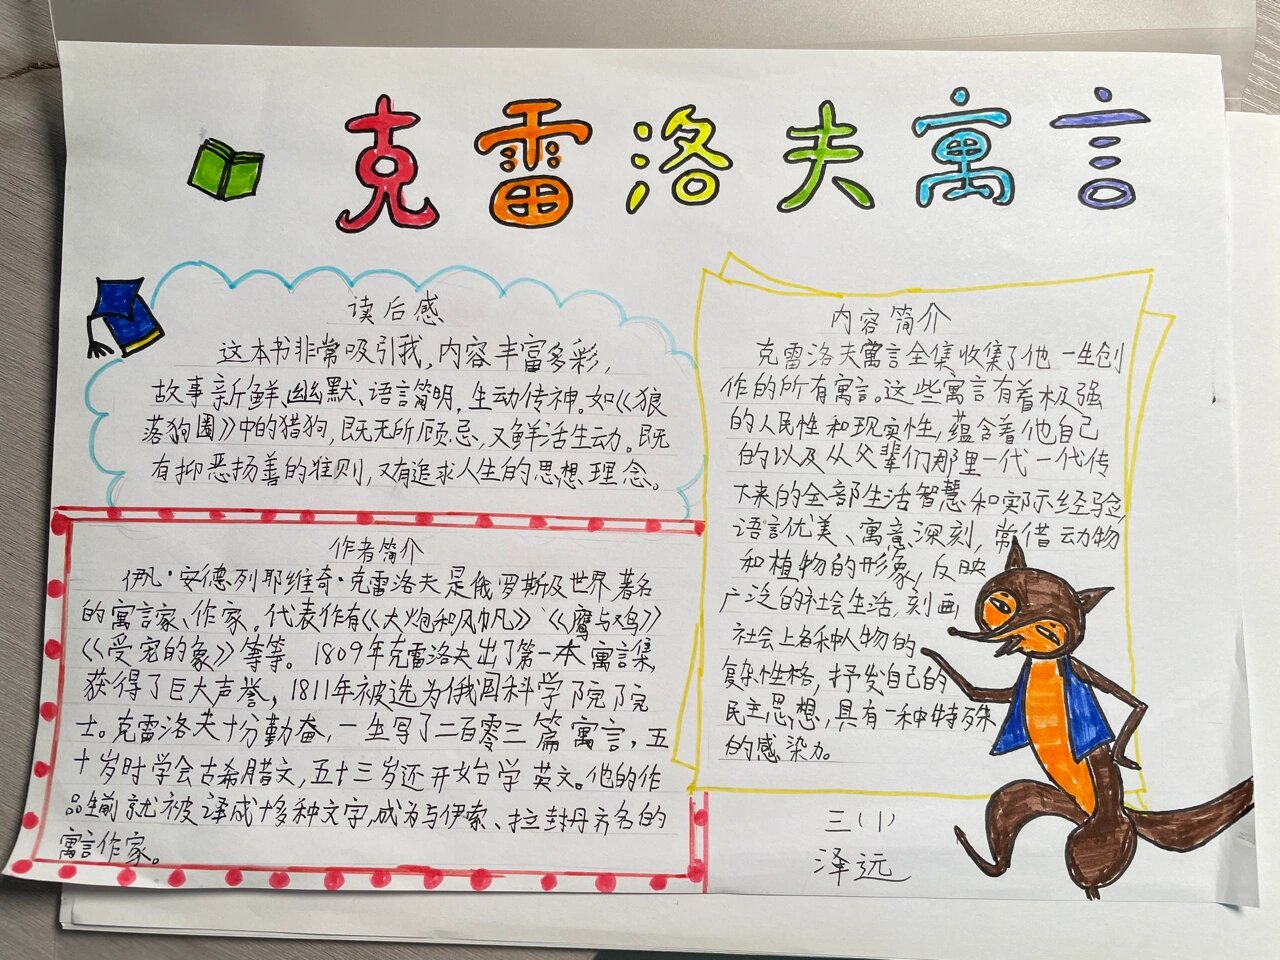 克雷洛夫寓言
读后感
这本书非常吸引我,内容丰富多彩,
故事新鲜、幽默、语言简明,生动传神。如《狼
落狗圈》中的猎狗,既无所顾忌,又鲜活生动。既
有抑恶扬善的准则,又有追求人生的思想理念。
作者简介
伊凡·安德列耶维奇·克雷洛夫是俄罗斯及世界著名
的寓言家、作家。代表作有《大炮和风帆》《鹰与鸡》
《受宠的象》等等。1809年克雷洛夫出了第一本寓言集,
获得了巨大声誉,1811年被选为俄国科学院院
士。克雷洛夫十分勤奋,一生写了二百零三篇寓言,五
十岁时学会古希腊文,五十三岁还开始学英文。他的作
品生前就被译成十多种文字,成为与伊索、拉封丹齐名的
寓言作家。
内容简介
克雷洛夫寓言全集收集了他一生创
作的所有寓言。这些寓言有着极强
的人民性和现实性,蕴含着他自己
的以及从父辈们那里一代一代传
下来的全部生活智慧和实际经验,
语言优美、寓意深刻,常借动物
和植物的形象,反映
广泛的社会生活,刻画
社会上各种人物的
复杂性格,抒发自己的
民主思想,具有一种特殊
的感染力。
三(1)
泽远